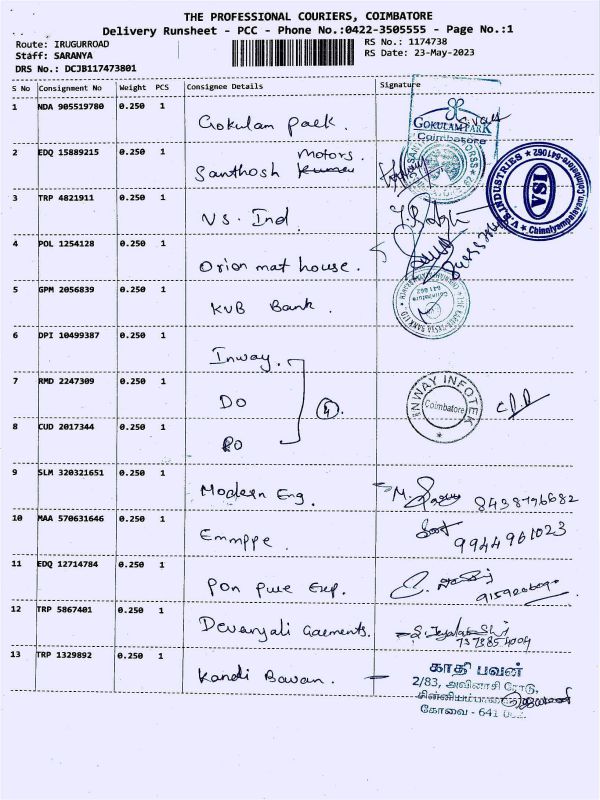 THE PROFESSIONAL COURIERS, COIMBATORE
Delivery Runsheet - PCC - Phone No.:0422-3505555 - Page No.:1
Route: IRUGURROAD
Staff: SARANYA
DRS No.: DCJB117473801
RS No.: 1174738
RS Date: 23-May-2023
S No Consignment No Weight PCS Consignee Details Signature
1 NDA 905519780 0.250 1 Gokulam Park.
GOKULAM PARK
Coimbatore
2 EDQ 15889215 0.250 1 Santhosh Motors.
3 TRP 4821911 0.250 1 VS. Ind
V.S.INDUSTRIES ★ Chinniyampalayam, Coimbatore-641062 ★
VSI
4 POL 1254128 0.250 1 Orion mat house.
5 GPM 2056839 0.250 1 KVB Bank.
6 DPI 10499387 0.250 1 Inway.
7 RMD 2247309 0.250 1 DO
8 CUD 2017344 0.250 1 DO
4
INWAY INFOTEK
Coimbatore
9 SLM 320321651 0.250 1 Modern Eng.
8438796682
10 MAA 570631646 0.250 1 Emmppe.
9944961023
11 EDQ 12714784 0.250 1 Pon Pure Exp.
12 TRP 5867401 0.250 1 Devanjali Garments.
13 TRP 1329892 0.250 1 Kandi Bawan.
காதி பவன்
2/83, அவினாசி ரோடு,
கோவை - 641